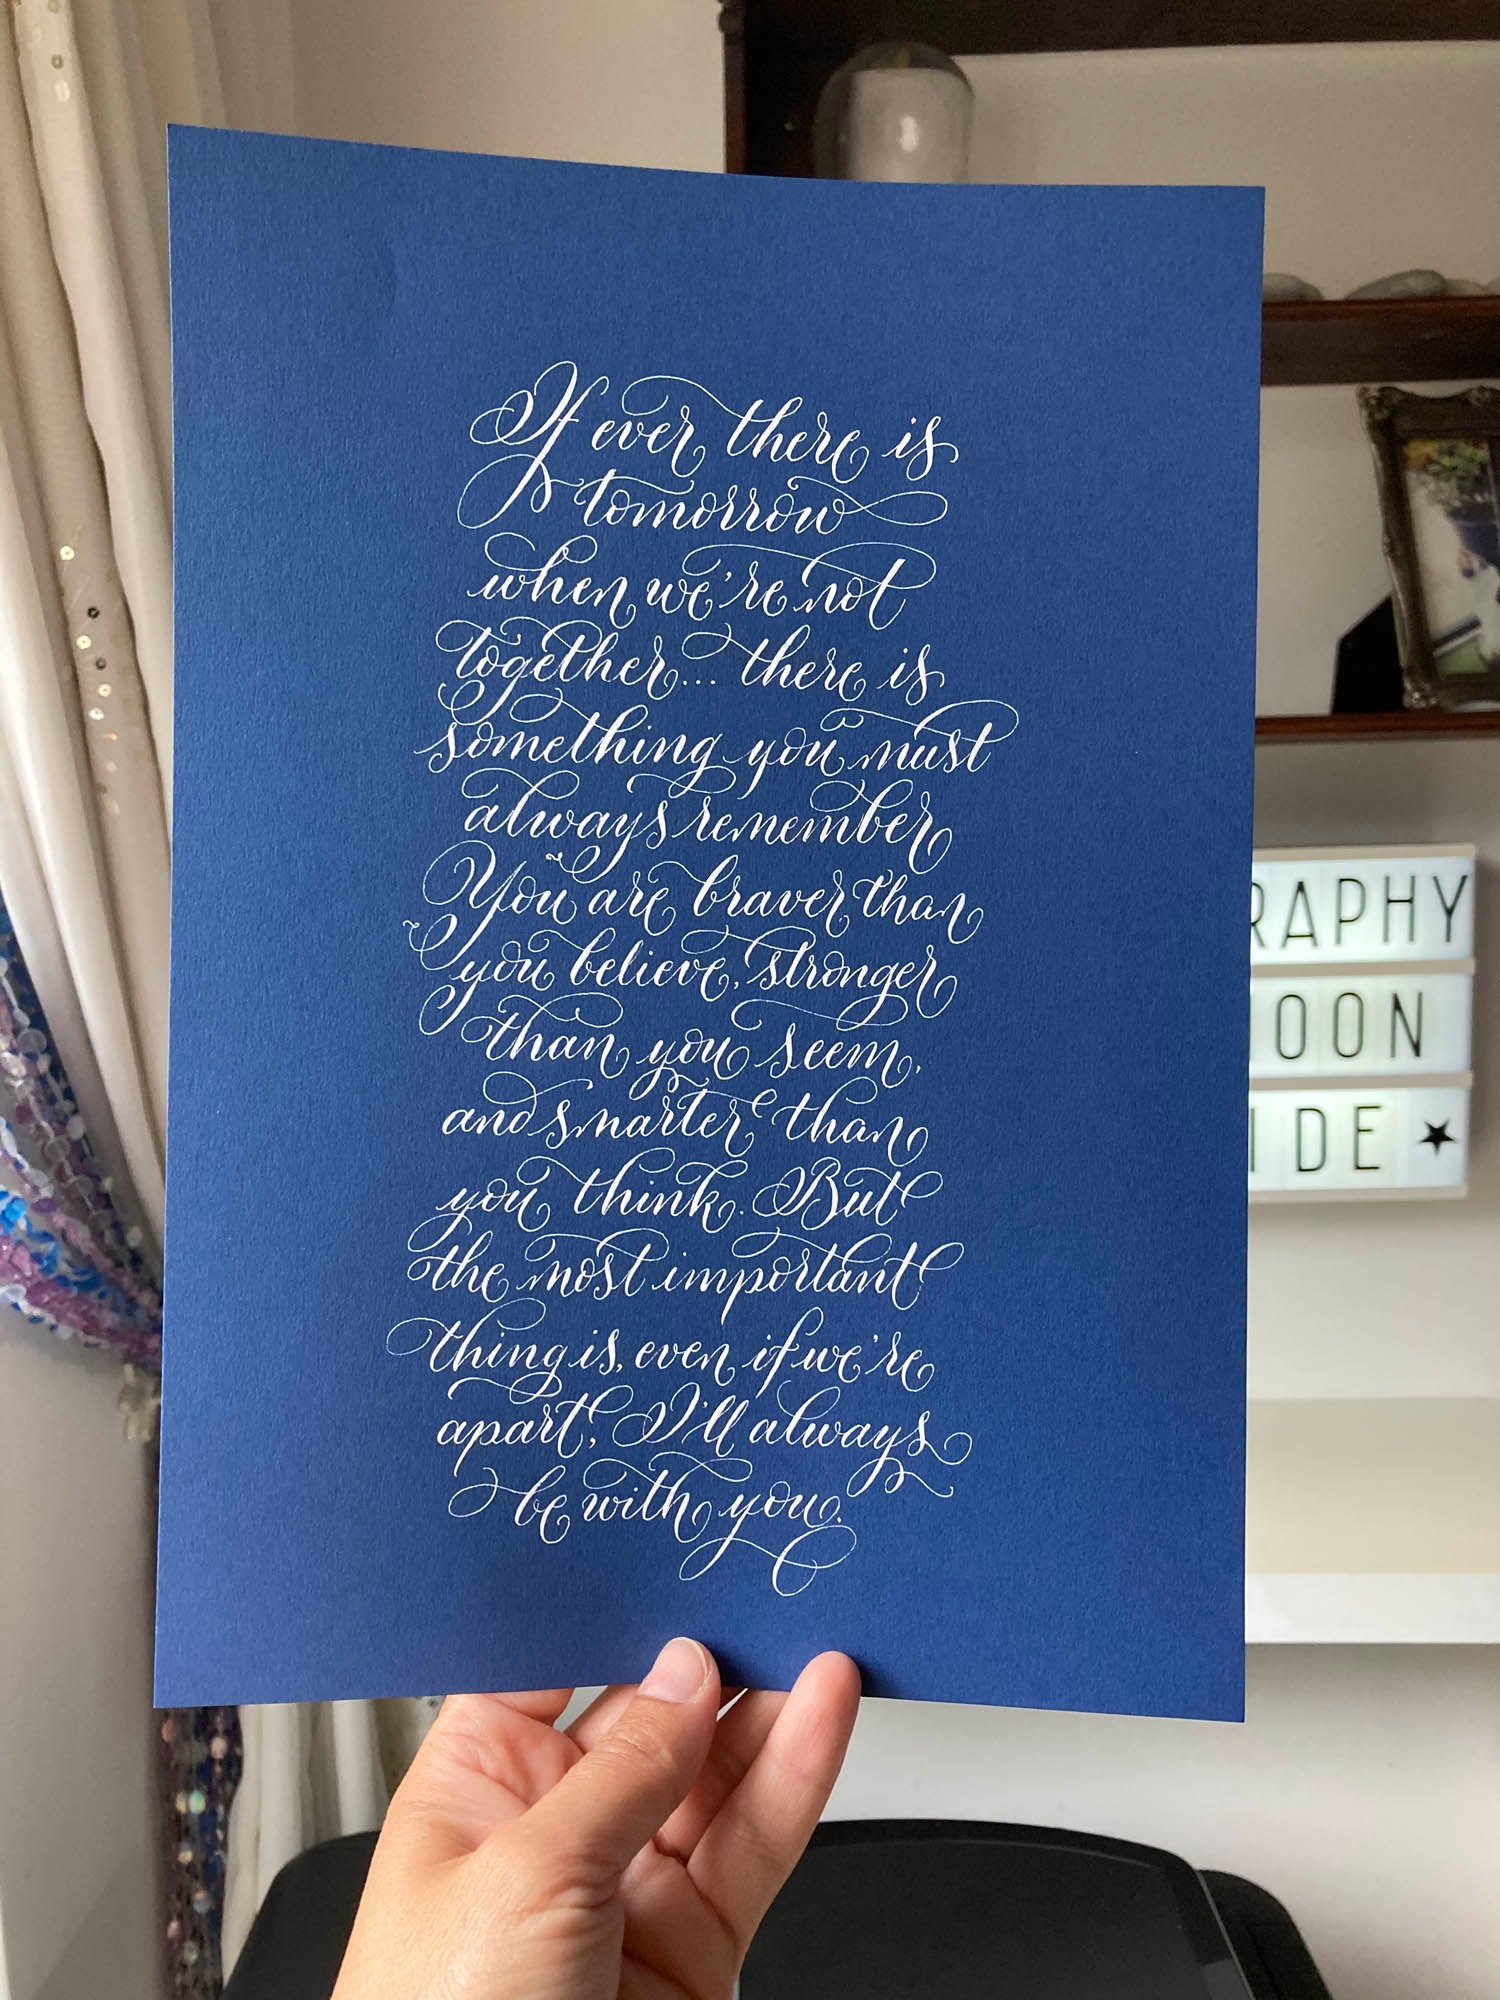 If ever there is
tomorrow
when we're not
together... there is
something you must
always remember
You are braver than
you believe, stronger
than you seem,
and smarter than
you think. But
the most important
thing is, even if we're
apart, I'll always
be with you.
RAPHY
OON
IDE ★